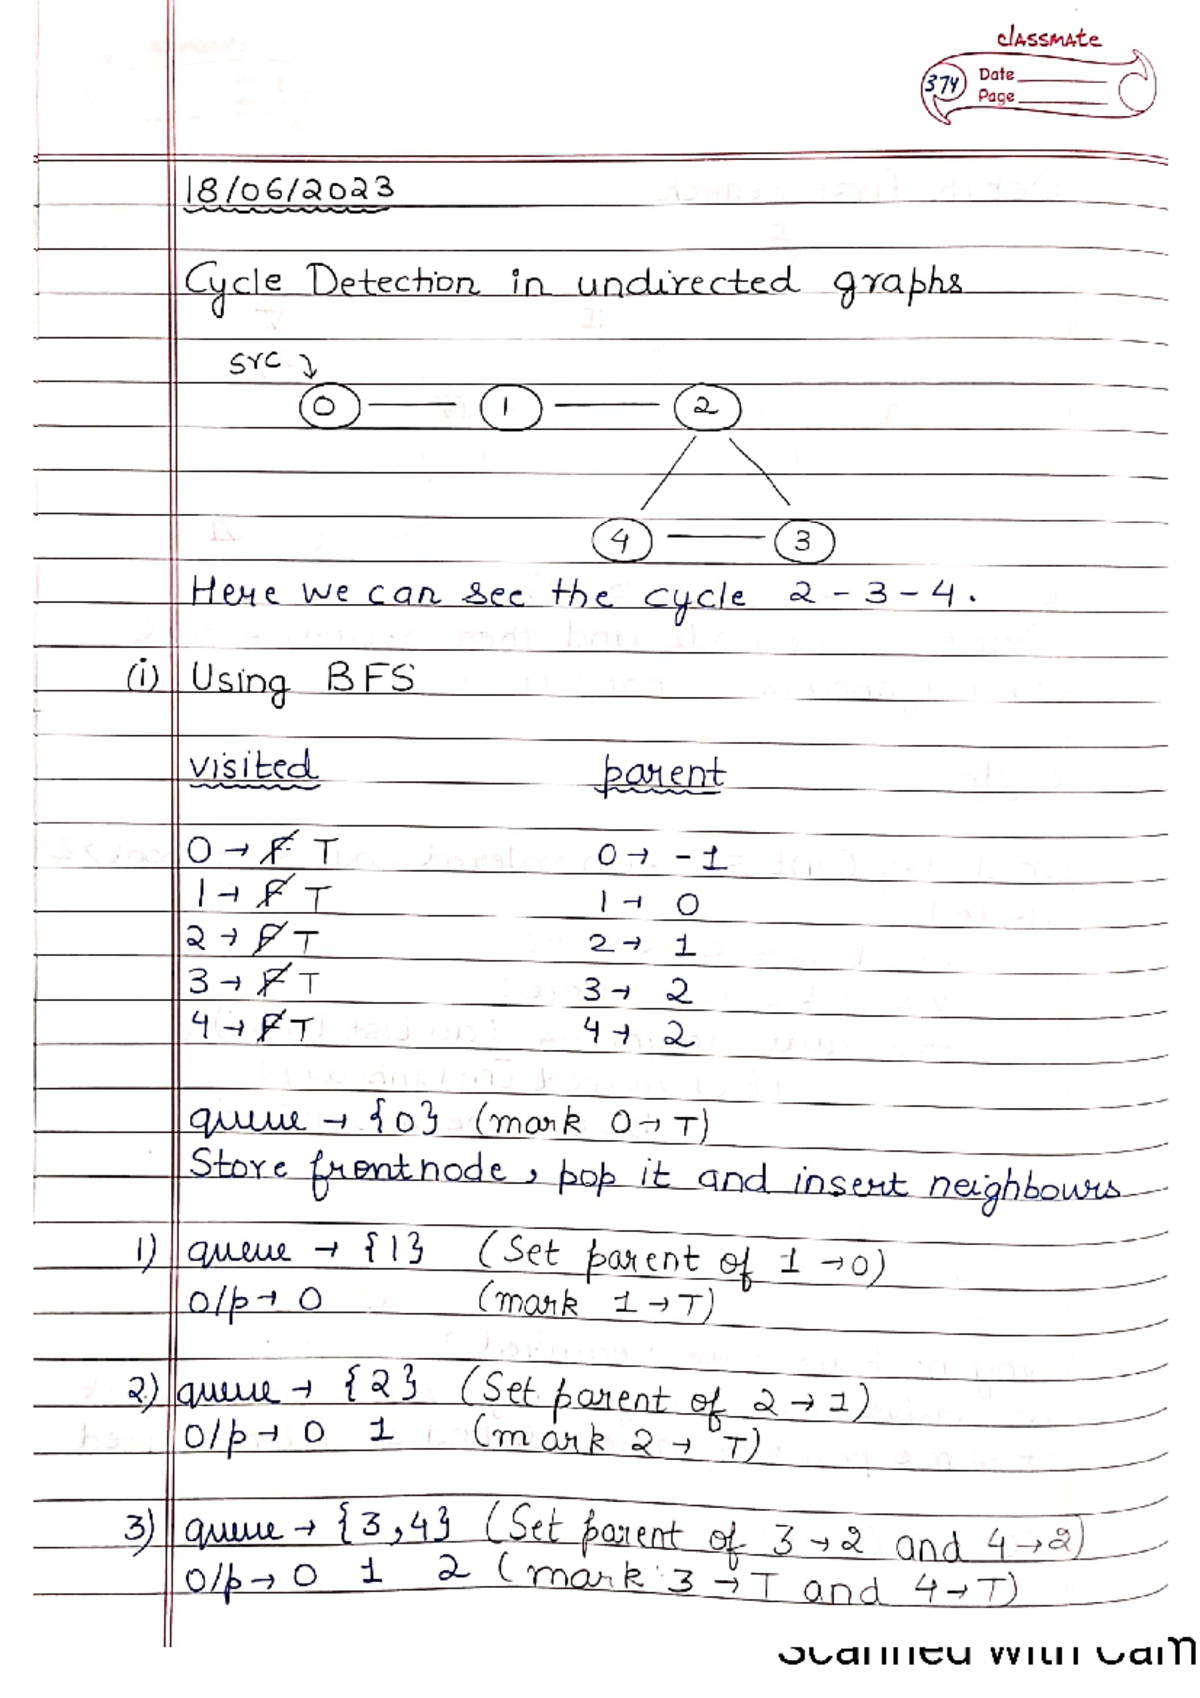 classmate
374
Date
Page
18/06/2023
Cycle Detection in undirected graphs
src ↓
0 1 2
4 3
Here we can see the cycle 2 - 3 - 4.
(i) Using BFS
visited parent
0 → F T 0 → -1
1 → F T 1 → 0
2 → F T 2 → 1
3 → F T 3 → 2
4 → F T 4 → 2
queue → {0} (mark 0 → T)
Store frontnode, pop it and insert neighbours
1) queue → {1} (Set parent of 1 → 0)
o/p → 0 (mark 1 → T)
2) queue → {2} (Set parent of 2 → 1)
o/p → 0 1 (mark 2 → T)
3) queue → {3,4} (Set parent of 3 → 2 and 4 → 2)
o/p → 0 1 2 (mark 3 → T and 4 → T)
Scanned with Cam